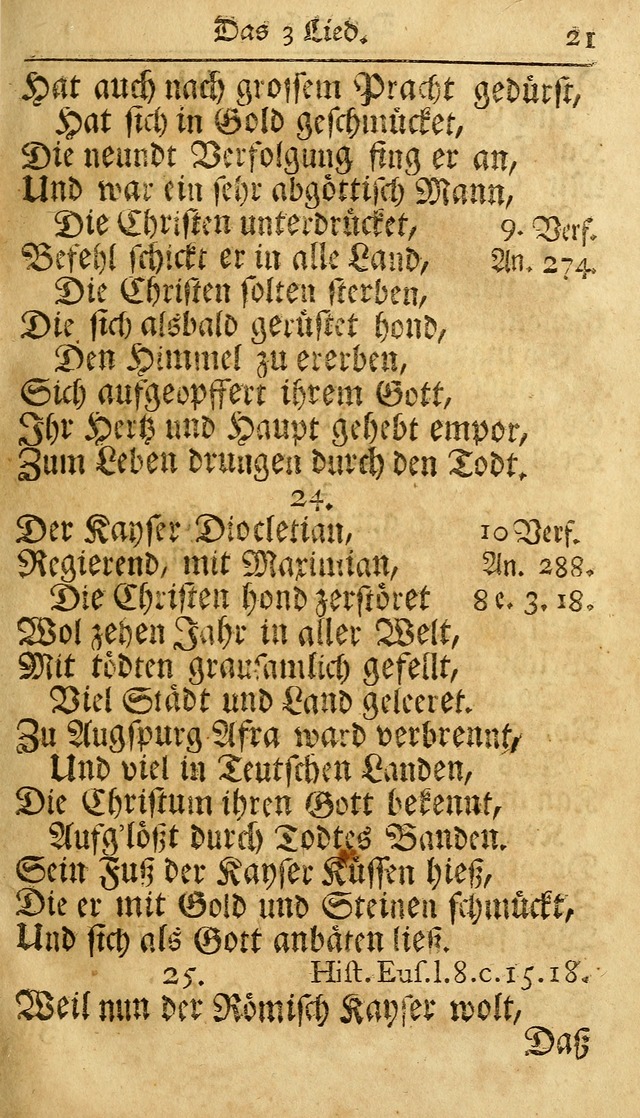 Das 3 Lied. 21
Hat auch nach grossem Pracht gedürst,
Hat sich in Gold geschmücket,
Die neundt Verfolgung fing er an,
Und war ein sehr abgöttisch Mann,
Die Christen unterdrücket, 9. Verf.
Befehl schickt er in alle Land, An. 274.
Die Christen solten sterben,
Die sich alsbald gerüstet hond,
Den Himmel zu ererben,
Sich aufgeopffert ihrem Gott,
Ihr Hertz und Haupt gehebt empor,
Zum Leben drungen durch den Todt.
24.
Der Kayser Diocletian, 10 Verf.
Regierend, mit Maximian, An. 288.
Die Christen hond zerstöret 8 c. 3. 18.
Wol zehen Jahr in aller Welt,
Mit tödten grausamlich gefellt,
Viel Städt und Land geleeret.
Zu Augspurg Afra ward verbrennt,
Und viel in Teutschen Landen,
Die Christum ihren Gott bekennt,
Aufg'lößt durch Todtes Banden.
Sein Fuß der Kayser Küssen hieß,
Die er mit Gold und Steinen schmückt,
Und sich als Gott anbäten ließ.
25. Hist. Eus. l. 8. c. 15. 18.
Weil nun der Römisch Kayser wolt,
Daß